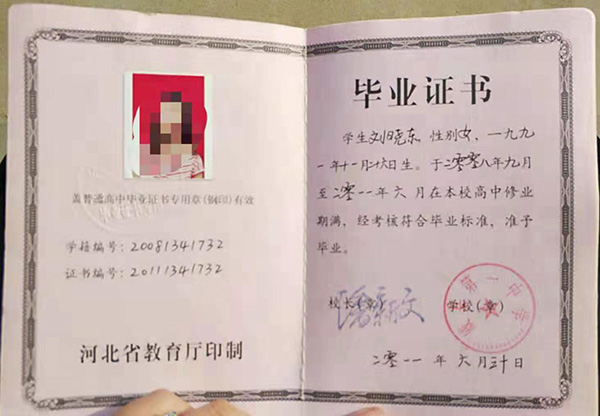 盖普通高中毕业证书专用章(钢印)有效
学籍编号:20081341732
证书编号:20111341732
河北省教育厅印制
毕业证书
学生刘晓东,性别女,一九九
一年十一月廿八日生。于二零零八年九月
至二零一一年六月在本校高中修业
期满,经考核符合毕业标准,准予
毕业。
校长(章)
学校(章)
第一中学
二零一一年六月三十日